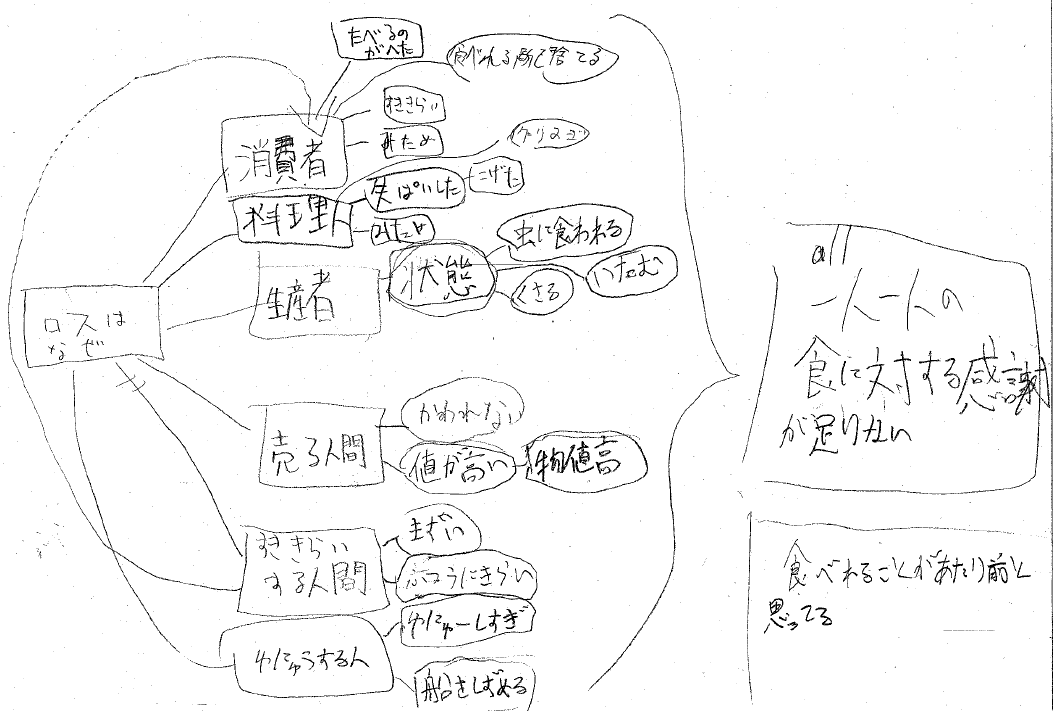 たべるの
がへた
食べれる所で捨てる
すききらい
みため
消費者
失ぱいした
こげた
料理人
みため
虫に食われる
状態
いたむ
くさる
生産者
ロスは
なぜ
かわれない
売る人間
値が高い
物値高
まずい
すききらい
する人間
ふつうにきらい
ゆにゅーしすぎ
ゆにゅうする人
all
一人一人の
食に対する感謝
が足りない
食べれることがあたり前と
思ってる